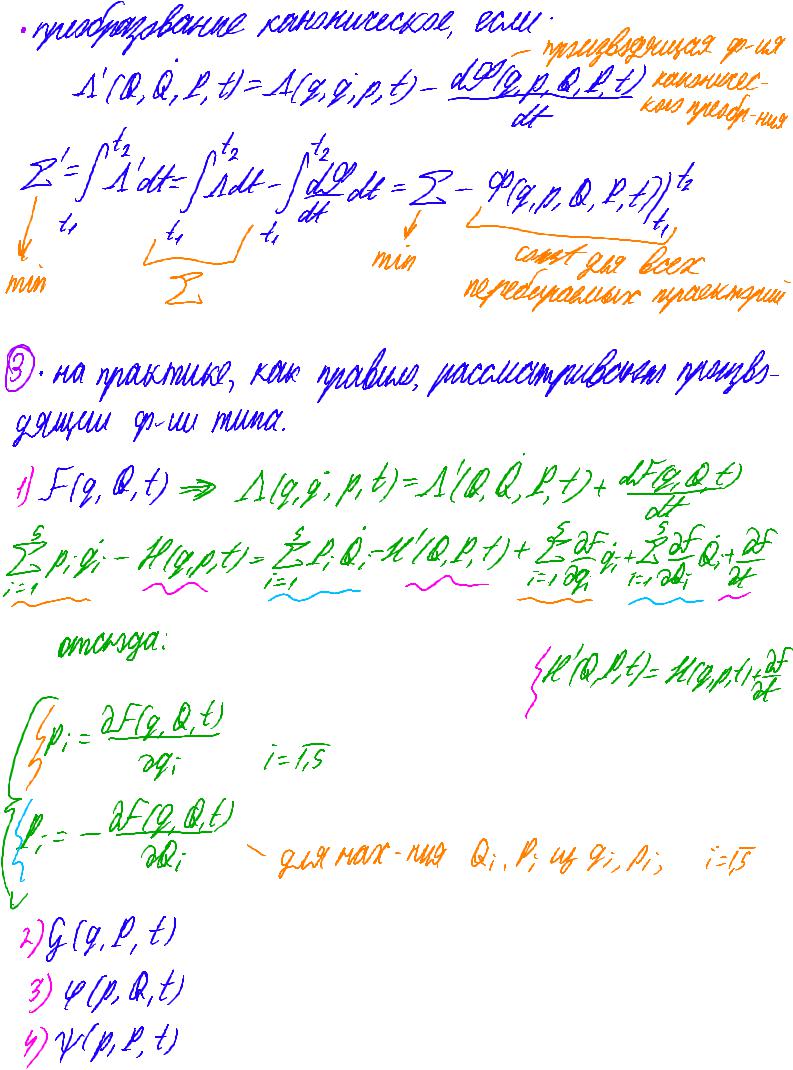 • преобразование каноническое, если:
Λ'(Q, Q̇, P, t) = Λ(q, q̇, p, t) − dΦ(q, p, Q, P, t)/dt – производящая ф-ия каничес-кого преобр-ния
Σ' = ∫_{t₁}^{t₂} Λ'dt = ∫_{t₁}^{t₂} Λdt − ∫_{t₁}^{t₂} dΦ/dt dt = Σ − Φ(q, p, Q, P, t)|_{t₁}^{t₂}
min Σ min const для всех
перебираемых траекторий
③ • на практике, как правило, рассматривают произво-
дящии ф-ии типа:
1) F(q, Q, t) ⇒ Λ(q, q̇, p, t) = Λ'(Q, Q̇, P, t) + dF(q, Q, t)/dt
Σ_{i=1}^{s} pᵢ q̇ᵢ − H(q, p, t) = Σ_{i=1}^{s} Pᵢ Q̇ᵢ − H'(Q, P, t) + Σ_{i=1}^{s} ∂F/∂qᵢ q̇ᵢ + Σ_{i=1}^{s} ∂F/∂Qᵢ Q̇ᵢ + ∂F/∂t
отсюда:
H'(Q, P, t) = H(q, p, t) + ∂F/∂t
pᵢ = ∂F(q, Q, t)/∂qᵢ i = 1,s
Pᵢ = − ∂F(q, Q, t)/∂Qᵢ – для нах-ния Qᵢ, Pᵢ из qᵢ, pᵢ, i = 1,s
2) G(q, P, t)
3) φ(p, Q, t)
4) ψ(p, P, t)